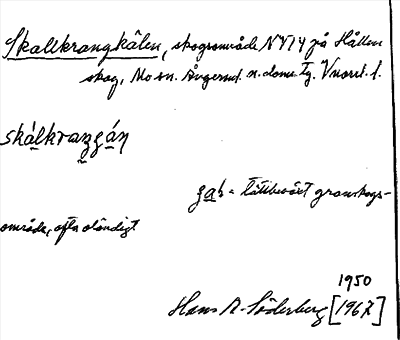 Skallkrangkålen, skogsområde NV14 på Hållen
skog, Mo sn. Ångerml. n. doms tg. Vnorrl. l.
skálkrazgán
gas = tättbevåxt granskogs-
område, ofta oländigt
1950
Hans R. Söderberg [1967]